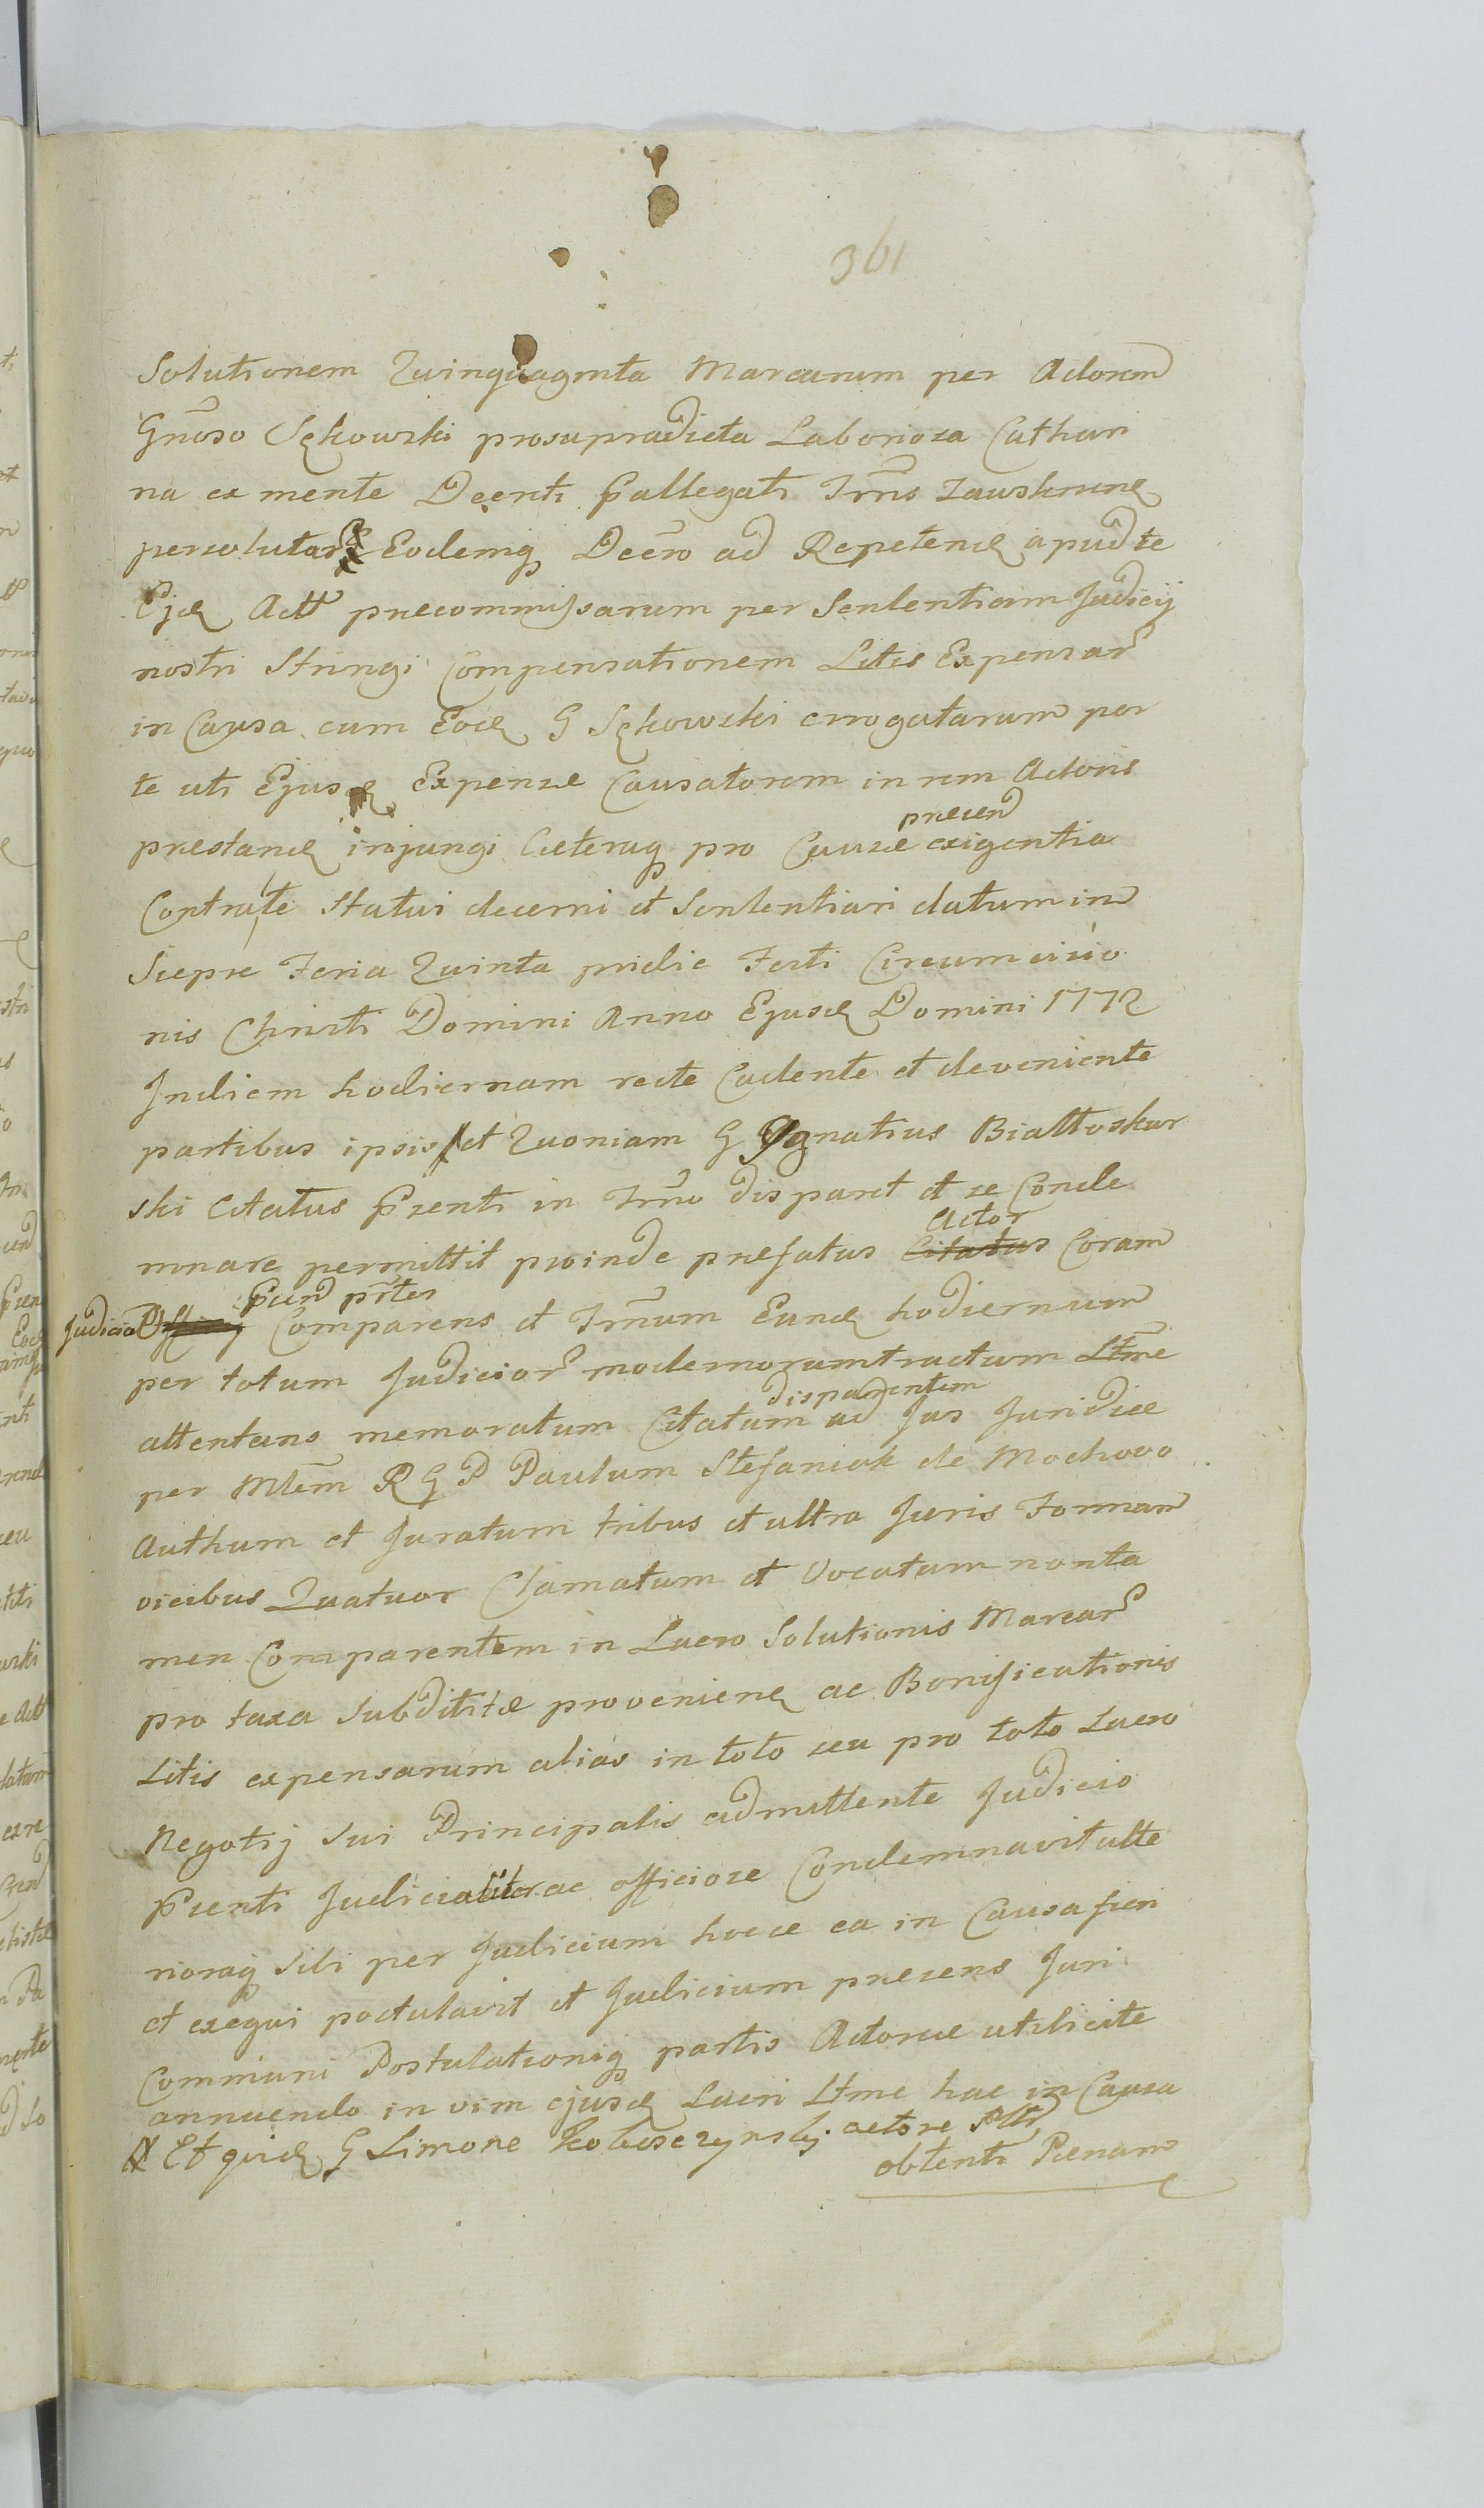 361
Solutionem Quinquagınta Marcarum per Actorem
Gnōso Sękowski prosupradicta Laboriosa Cathari
na ex mente Dcenti p̄allegati Trn̄s Zauskrune
persolutar Eodemq Decr̄o ad Repetend apud te
Ejd Actt præcommissarum per Sententiam Judicij
nostri Stringi Compensationem Litis Expensar
in Causa cum Eod G Sękowski errogatarum per
te uti Ejusd Expensæ Causatorem in rem Actoris
præsen
præstand injungi Cæteraq pro Causæ exigentia
Contra te Statui decerni et Sententiari datum in
Siepre Feria Quinta pridie Festi Circumcisio
nis Christi Domini Anno Ejusd Domini 1772
In diem hodiernam recte Cadente et deveniente
partibus ipsis et Quoniam G Ignatius Białłoskur
ski Citatus p̄senti in Trn̄o disparet et se Conde
Actor
mnare permittit proinde præfatus Citatus Coram
p̄sen prtēr
Judicio Comparens et Trn̄um Eund hodiernum
per totum Judicior modernorum tractum Ltme
disparentem
attentans memoratum Citatum ad Jus Juridice
per Mtem R G P Paulum Stefaniak de Mochovo
Authum et Juratum tribus et ultra Juris Formam
vicibus Quatuor Clamatum et Vocatum non ta
men Comparentem in Lucro Solutionis Marcar
pro taxa Subdititæ provenien ac Bonificationis
Litis expensarum alias in toto seu pro toto Lucro
Negotij Sui Principalis admittente Judicio
p̄senti Judicialiter ac officiose Condemnavit ulte
rioraq Sibi per Judicium hocce ea in Causa fieri
et exequi postulavit et Judicium præsens Juri
Communi Postulationiq partis Actoreæ uti licite
annuendo in vim ejusd Lucri Ltme hac in Causa
Et quid G Simone actore
obtenti Pænam